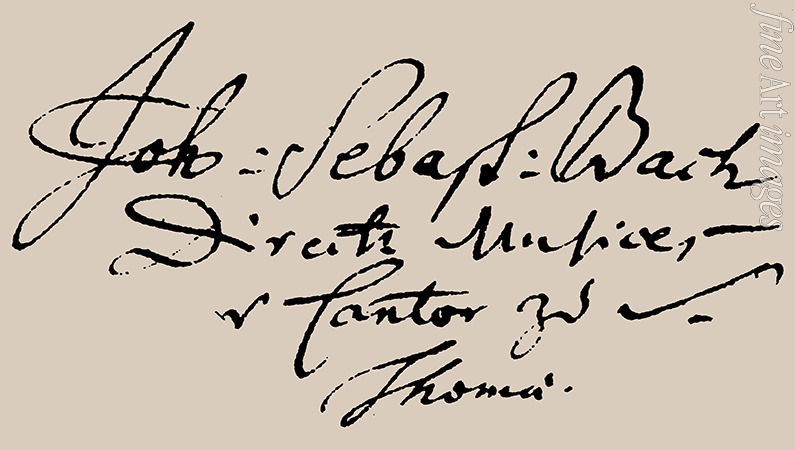 Joh: Sebast: Bach
Direct: Musices,
Cantor zu S.
Thomae.
fine Art images